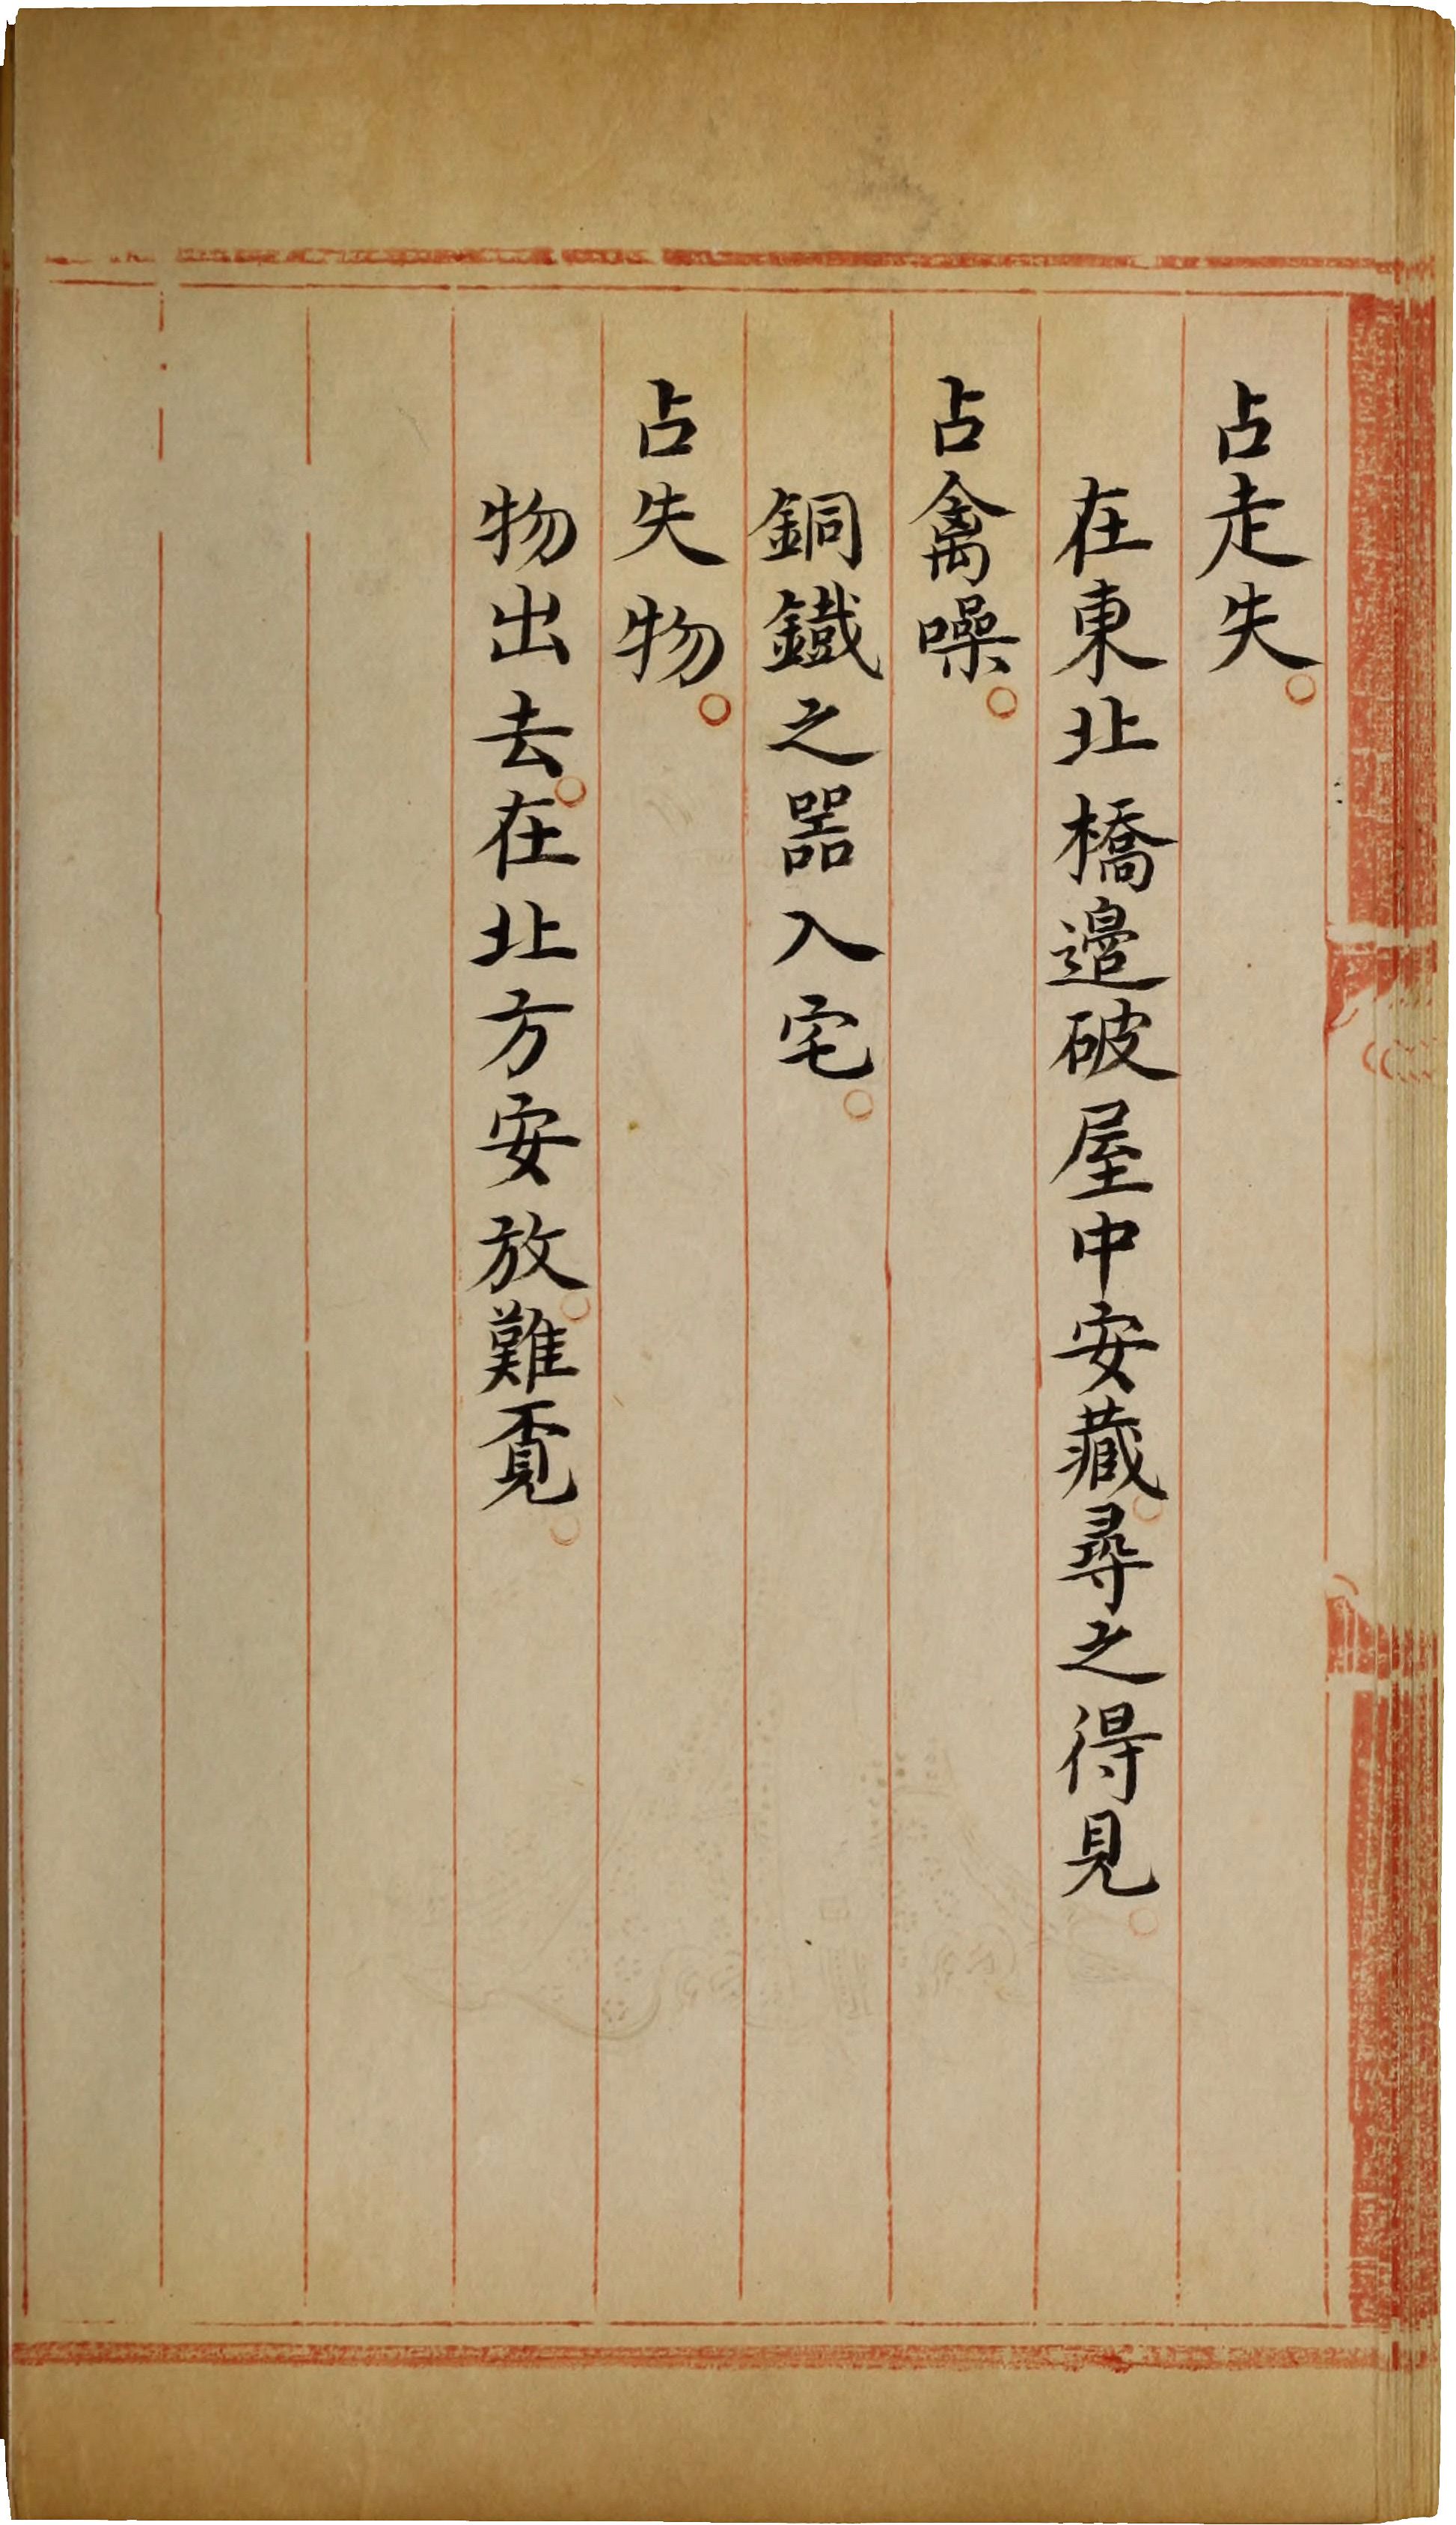 占走失。
在東北橋邉破屋中安藏。尋之得見。
占禽噪。
銅鐵之器入宅。
占失物。
物出去。在北方安放。難覔。